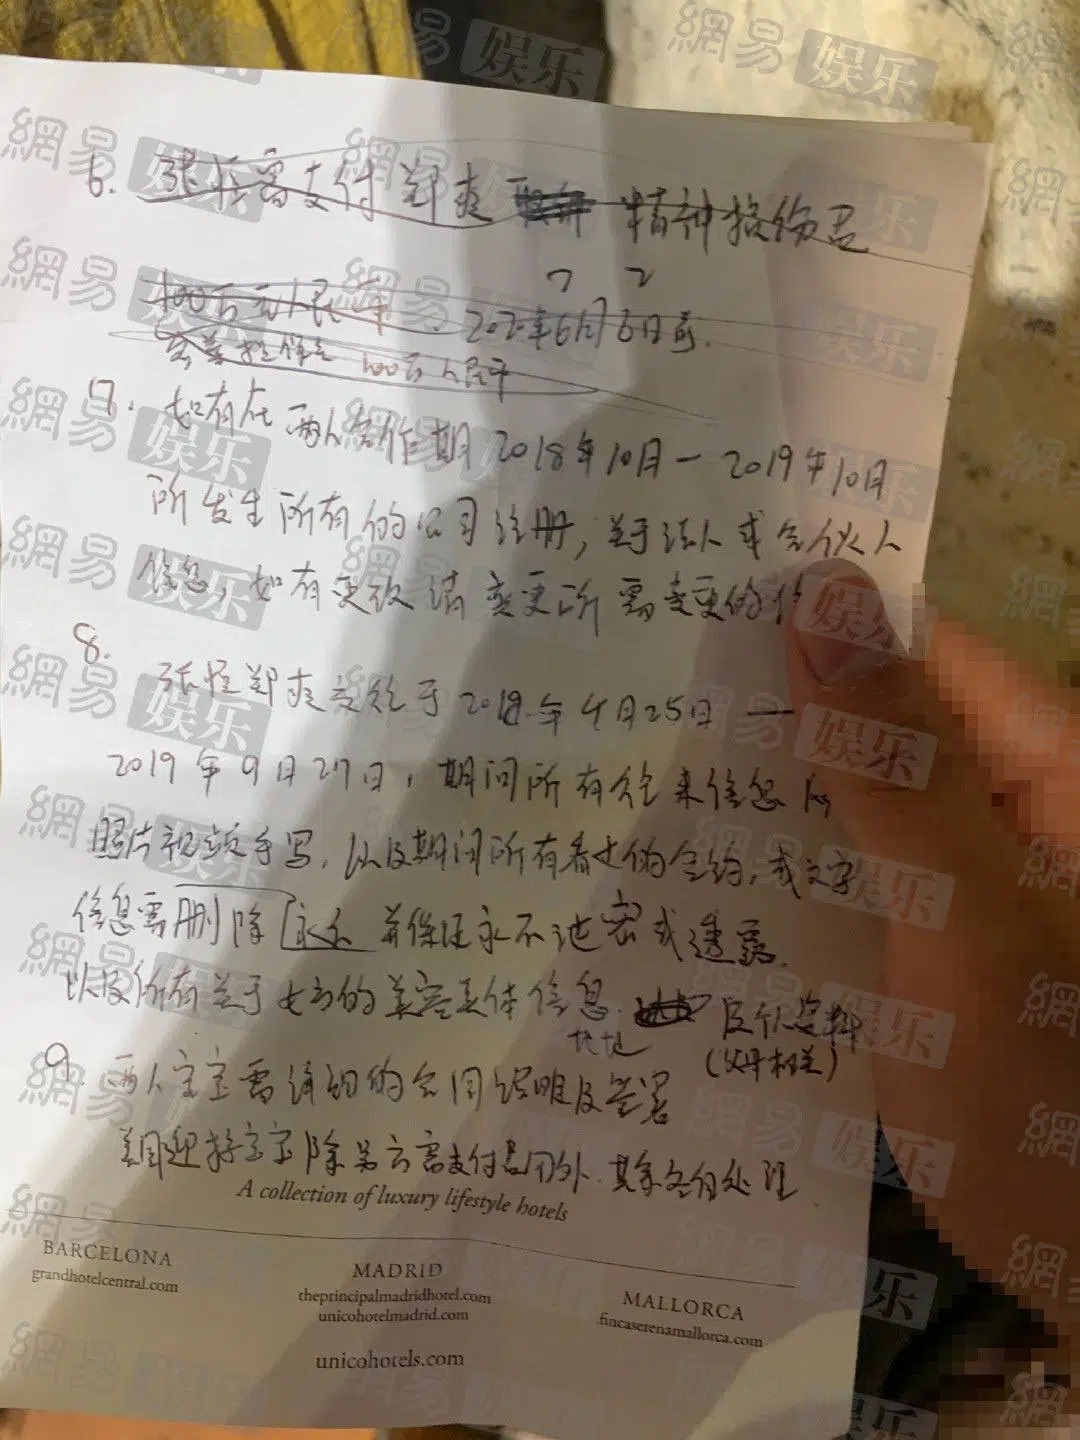 6. 张恒需支付郑爽 精神损伤 
100万元人民币 2020年6月6日前.
7 2
100万人民币
7. 如有在两人合作期2018年10月一2019年10月
所发生所有的公司注册,关于法人或合伙人
信息,如有更改请变更所需变更的
8.
张恒郑爽交往于2018年4月25日—
2019年9月27日,期间所有往来信息
照片视频手写,以及期间所有 合约,或文字
信息需删除 永久 并保证永不泄密或透露.
以及所有关于女方的美容美体信息. 
地址
(父母相关)
9. 两人宝宝需详细的合同说明及签署
美国迎接宝宝除男方需支付费用外.其余各自处理.
A collection of luxury lifestyle hotels
BARCELONA
grandhotelcentral.com
MADRID
theprincipalmadridhotel.com
unicohotelmadrid.com
MALLORCA
fincaserenamallorca.com
unicohotels.com
網易 娱乐